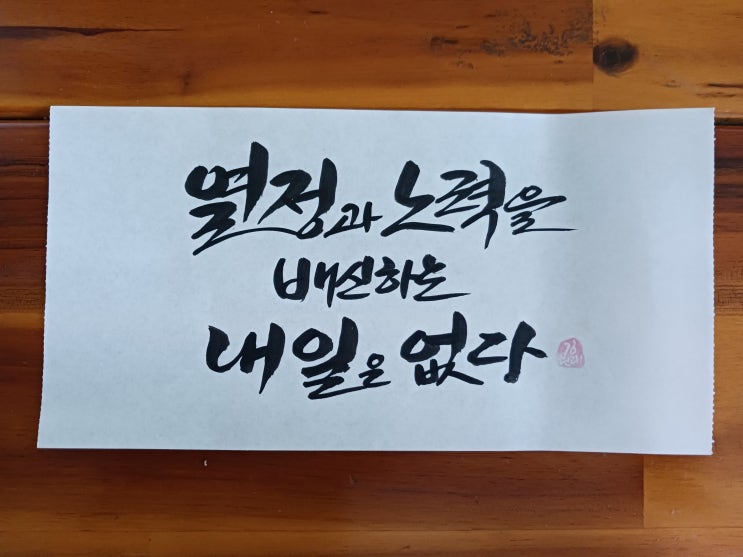 열정과 노력을
배신하는
내일은 없다